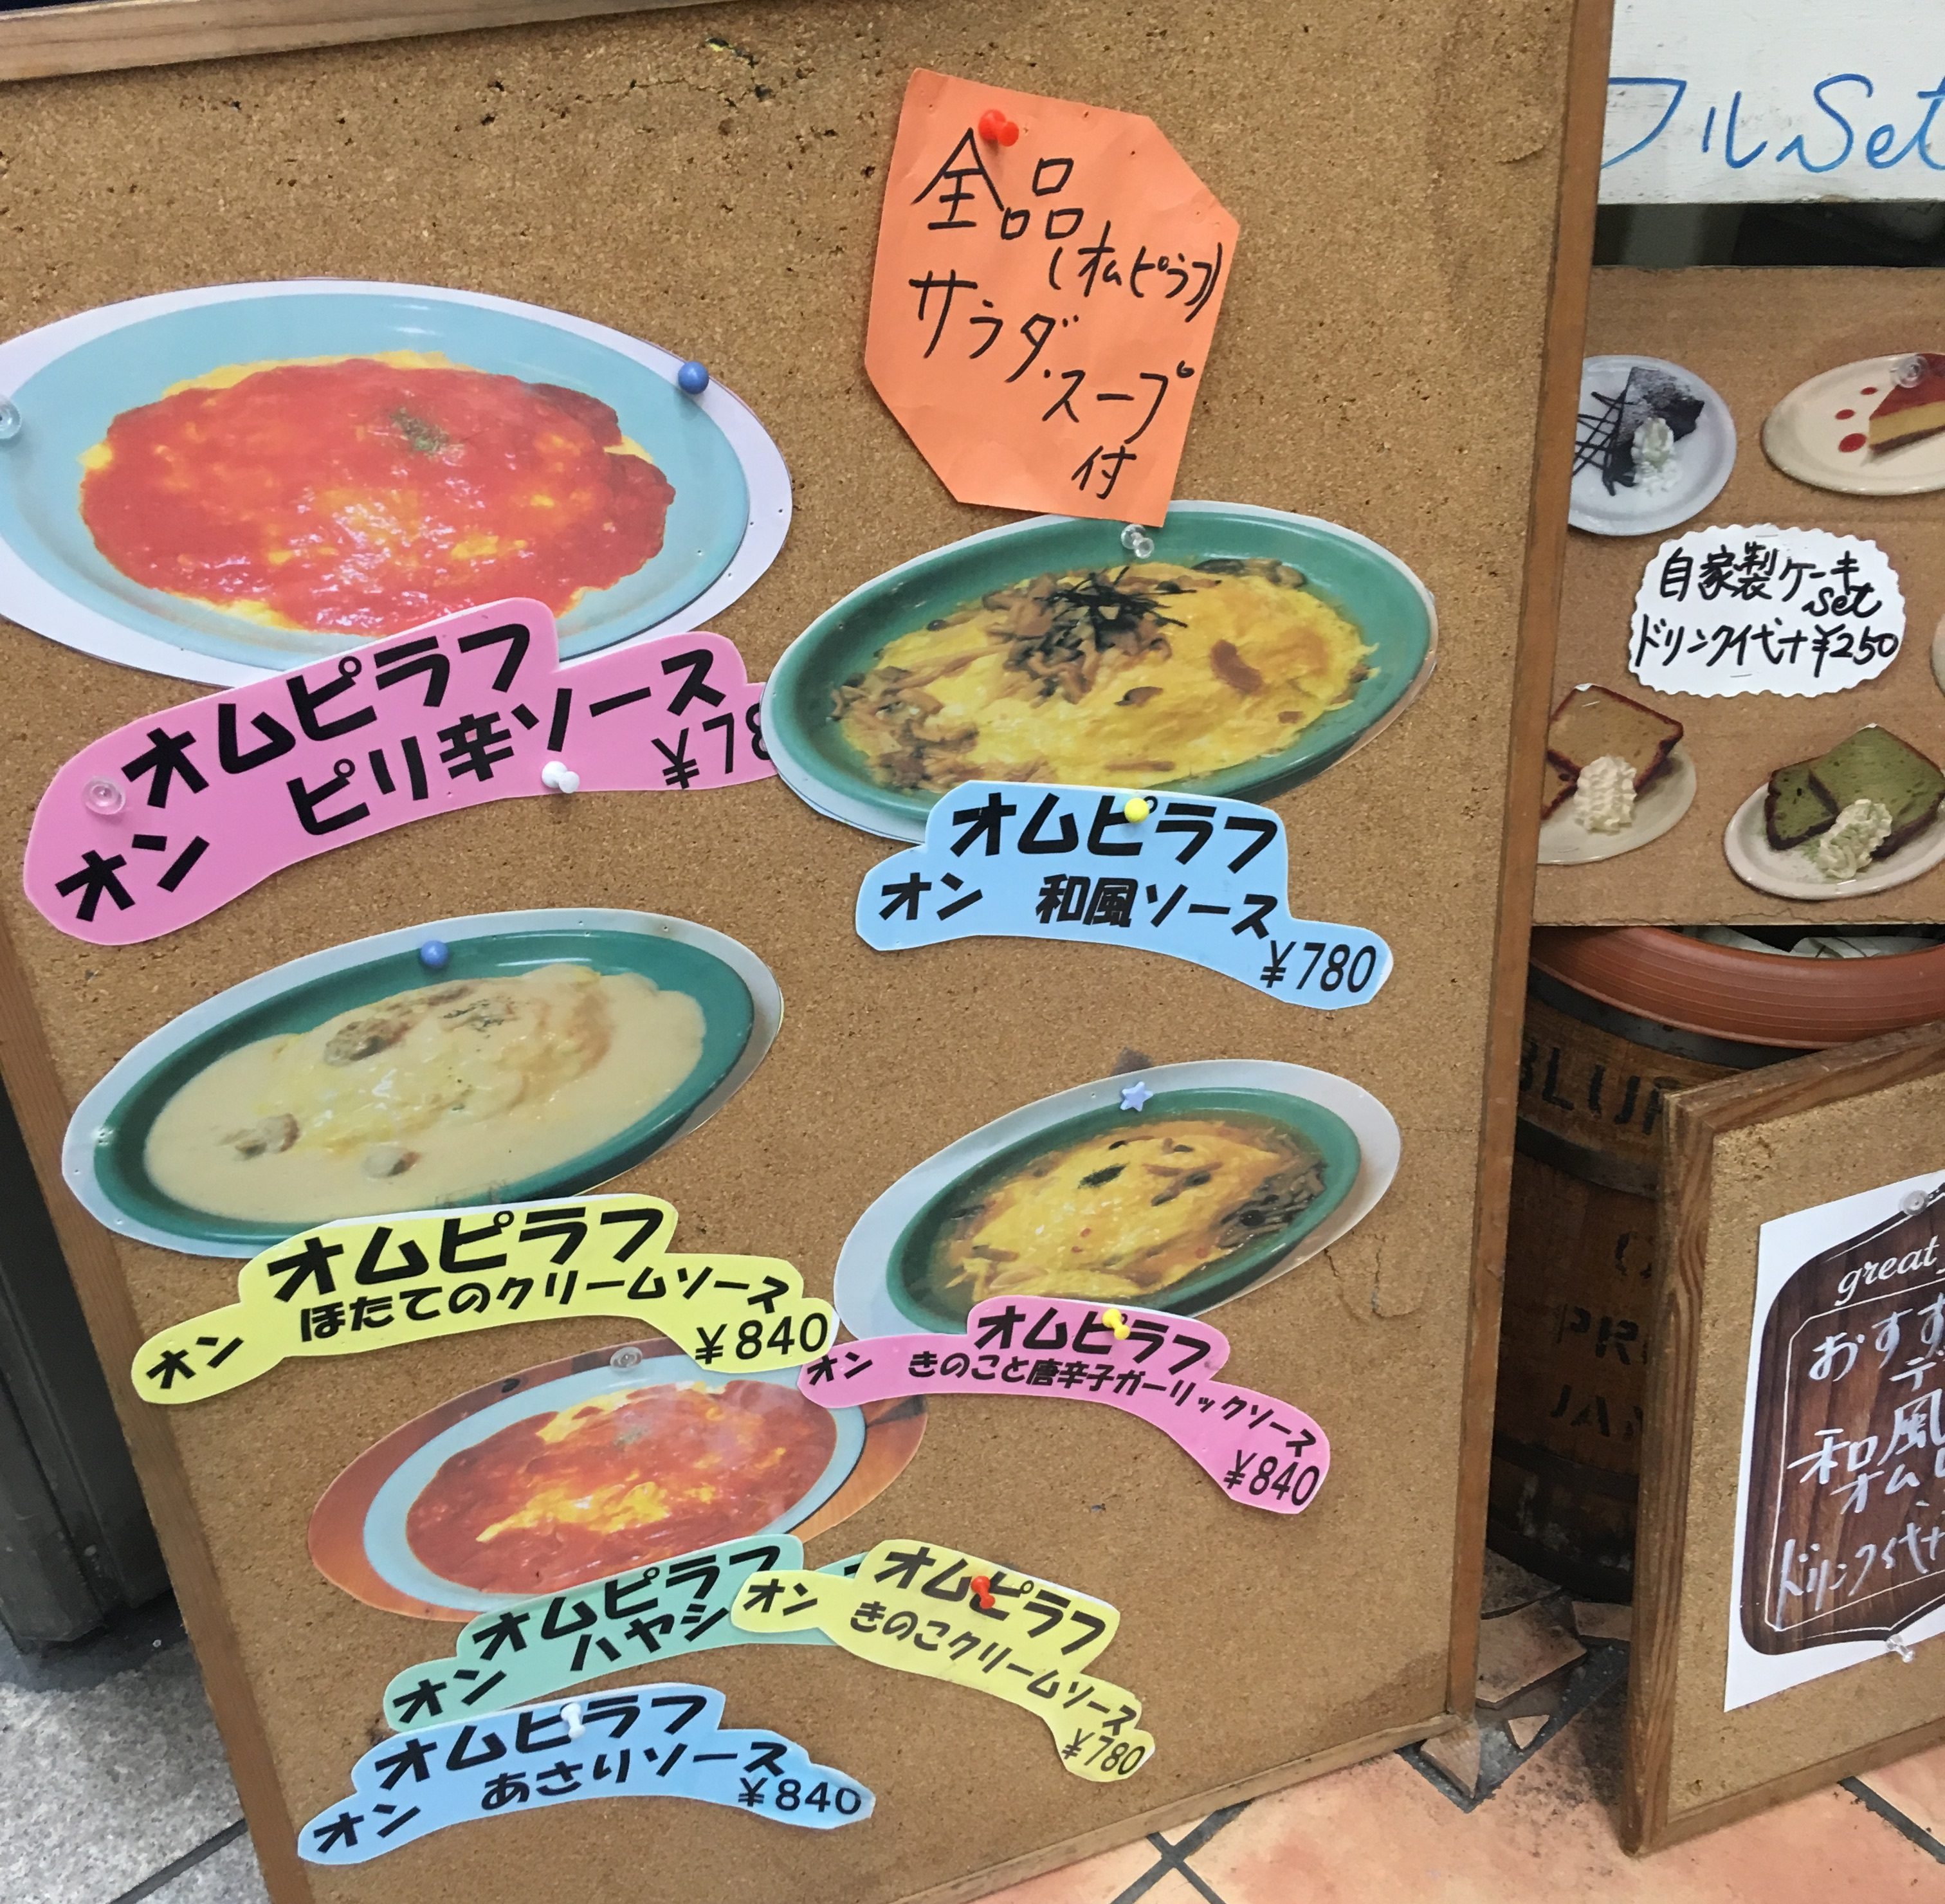 全品
(オムピラフ)
サラダ.スープ
付
オムピラフ
オン ピリ辛ソース
¥78
オムピラフ
オン 和風ソース
¥780
オムピラフ
オン ほたてのクリームソース
¥840
オムピラフ
オン きのこと唐辛子ガーリックソース
¥840
オムピラフ
オン ハヤシ
オムピラフ
オン きのこクリームソース
¥780
オムピラフ
オン あさりソース
¥840
フルSet
自家製ケーキ
set
ドリンク代+¥250
great
おすす
和風
オム
ドリンク代+